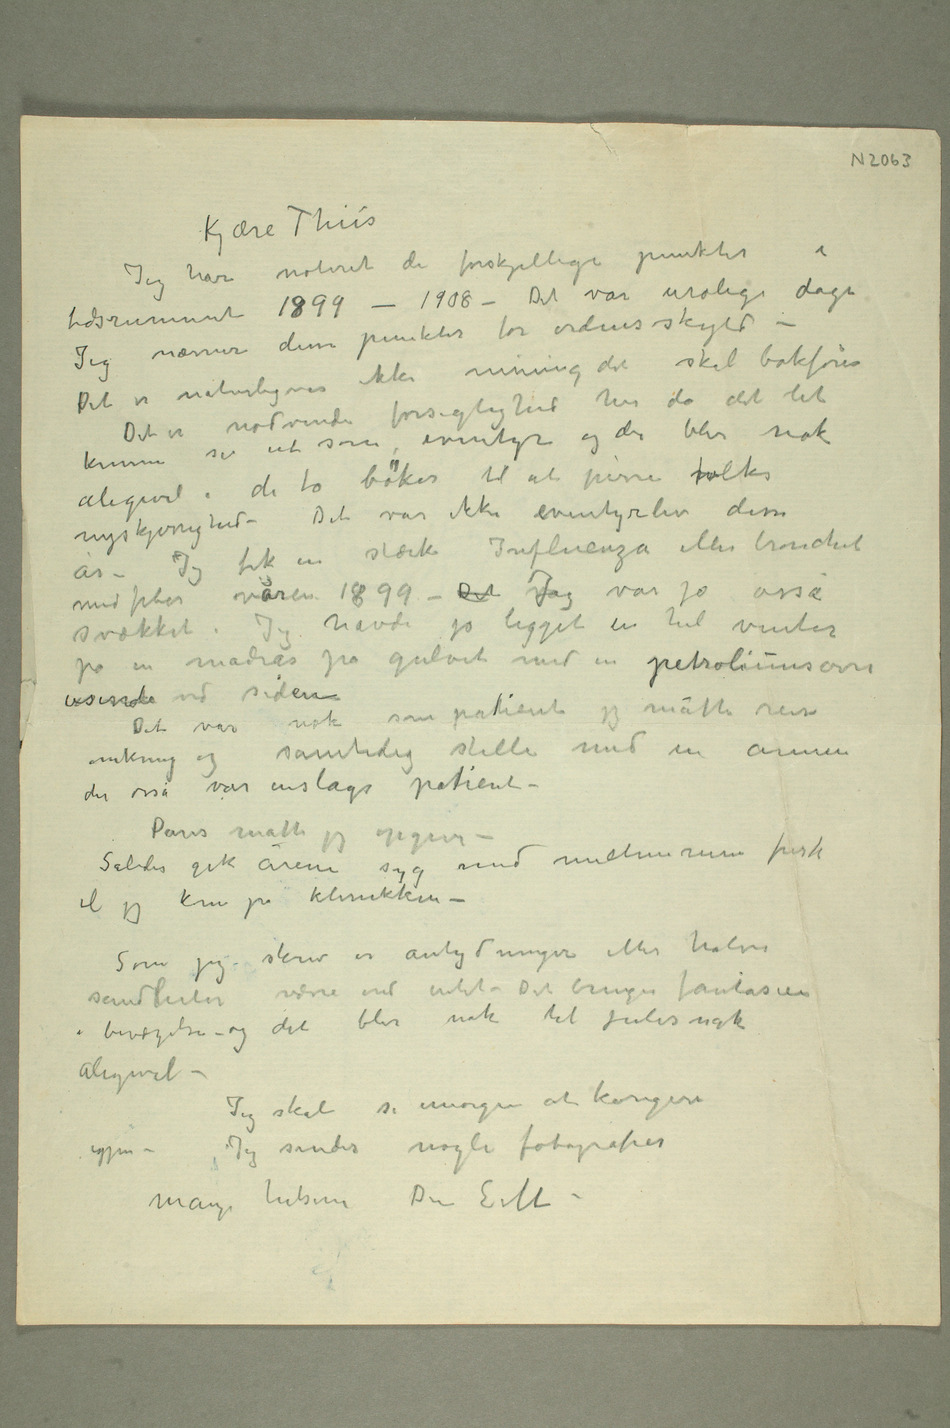 N2063
Kjære Thiis
Jeg har noteret de forskjellige punkter i
tidsrummet 1899 – 1908 – Det var urolige dage
Jeg nævner disse punkter for ordens skyld –
Det er naturligvis ikke mening det skal bokføres
Det er nødvendi forsigtighed her da det let
kunne se ut som eventyr og der blir nok
aligevel i de to bøker til at pirre folks
nyskjerrighed – Det var ikke eventyrlev disse
år – Jeg fik en stærk Influenza eller bronchit
med feber våren 1899 – Det Jeg var jo osså
svækket. Jeg havde jo ligget en hel vinter
på en madras på gulvet med en petroliumsovn
osende ved siden
Det var nok som patient jeg måtte reise
omkring og samtidig stelle med en annen
der osså var enslags patient –
Paris måtte jeg opgive –
Således gik årene syg med mellemrum frisk
til jeg kom på klinikken –
Som jeg skrev er antydninger eller halve
sandheter værre end intet – Det bringer fantasien
i bevægelse – og det blir nok til
aligevel –
Jeg skal se imorgen at korrigere
igjen – Jeg sender nogle fotografier
Mange hilsener Din